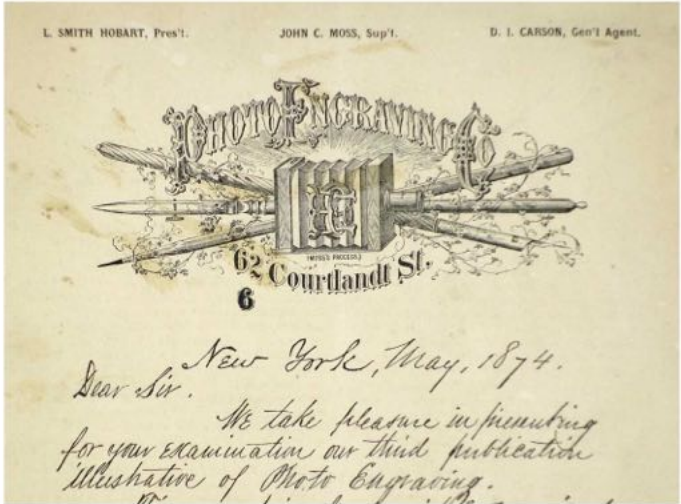 L. SMITH HOBART, Pres't. JOHN C. MOSS, Sup't. D. I. CARSON, Gen'l Agent.
PHOTO ENGRAVING CO
(MOSS'S PROCESS.)
62 Courtlandt St.
6
New York, May, 1874.
Dear Sir.
We take pleasure in presenting
for your examination our third publication
illustrative of Photo Engraving.